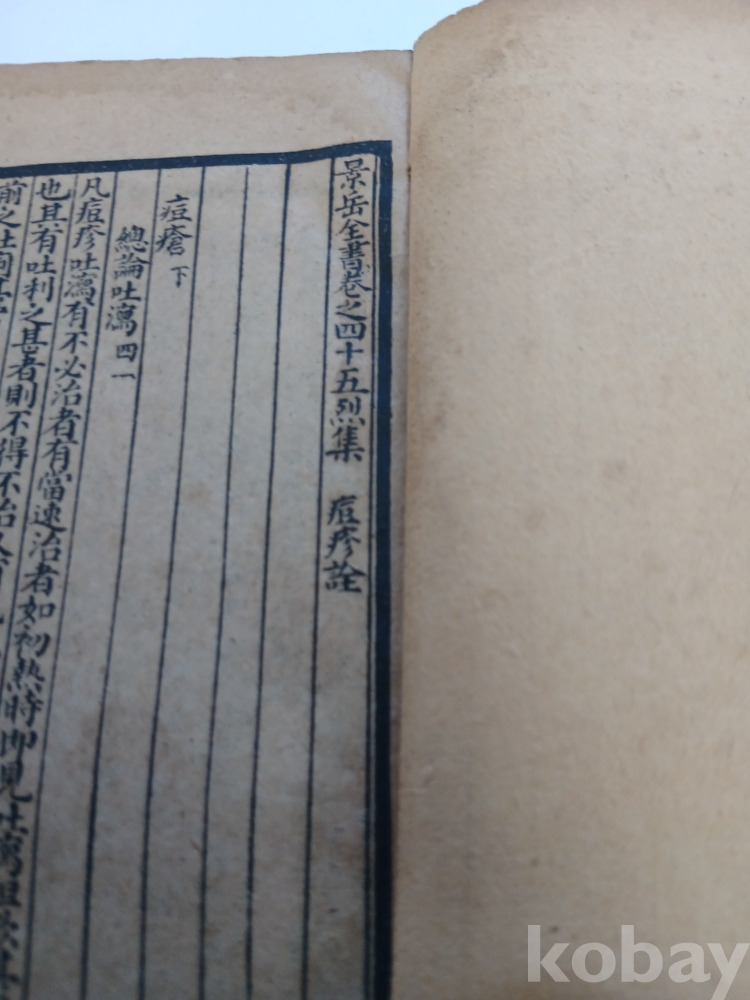 景岳全書卷之四十五烈集 痘疹詮
痘瘡下
總論吐瀉四一
凡痘疹吐瀉有不必治者有當速治者如初熱時即見吐瀉
也其有吐利之甚者則不得不治
前之吐
kobay